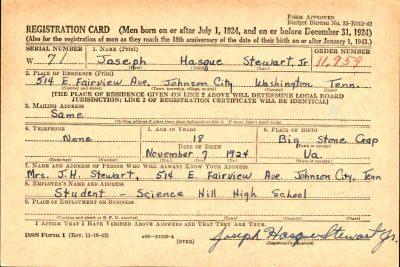 Form Approved
Budget Bureau No. 33-R012-42
REGISTRATION CARD (Men born on or after July 1, 1924, and on or before December 31, 1924)
(Also for the registration of men as they reach the 18th anniversary of the date of their birth on or after January 1, 1943.)
SERIAL NUMBER 1. NAME (Print) ORDER NUMBER
W 71 Joseph Hasque Stewart, Jr. 11,959
2. PLACE OF RESIDENCE (Print)
514 E. Fairview Ave. Johnson City Washington Tenn.
(THE PLACE OF RESIDENCE GIVEN ON LINE 2 ABOVE WILL DETERMINE LOCAL BOARD
JURISDICTION; LINE 2 OF REGISTRATION CERTIFICATE WILL BE IDENTICAL)
3. MAILING ADDRESS
Same
4. TELEPHONE 5. AGE IN YEARS 6. PLACE OF BIRTH
None 18 Big Stone Gap
DATE OF BIRTH
November 7 1924 Va.
7. NAME AND ADDRESS OF PERSON WHO WILL ALWAYS KNOW YOUR ADDRESS
Mrs. J.H. Stewart, 514 E. Fairview Ave. Johnson City, Tenn
8. EMPLOYER'S NAME AND ADDRESS
Student - Science Hill High School
9. PLACE OF EMPLOYMENT OR BUSINESS
I AFFIRM THAT I HAVE VERIFIED ABOVE ANSWERS AND THAT THEY ARE TRUE.
DSS Form 1 (Rev. 11-16-42) (OVER) Joseph Hasque Stewart Jr.
(Registrant's signature)